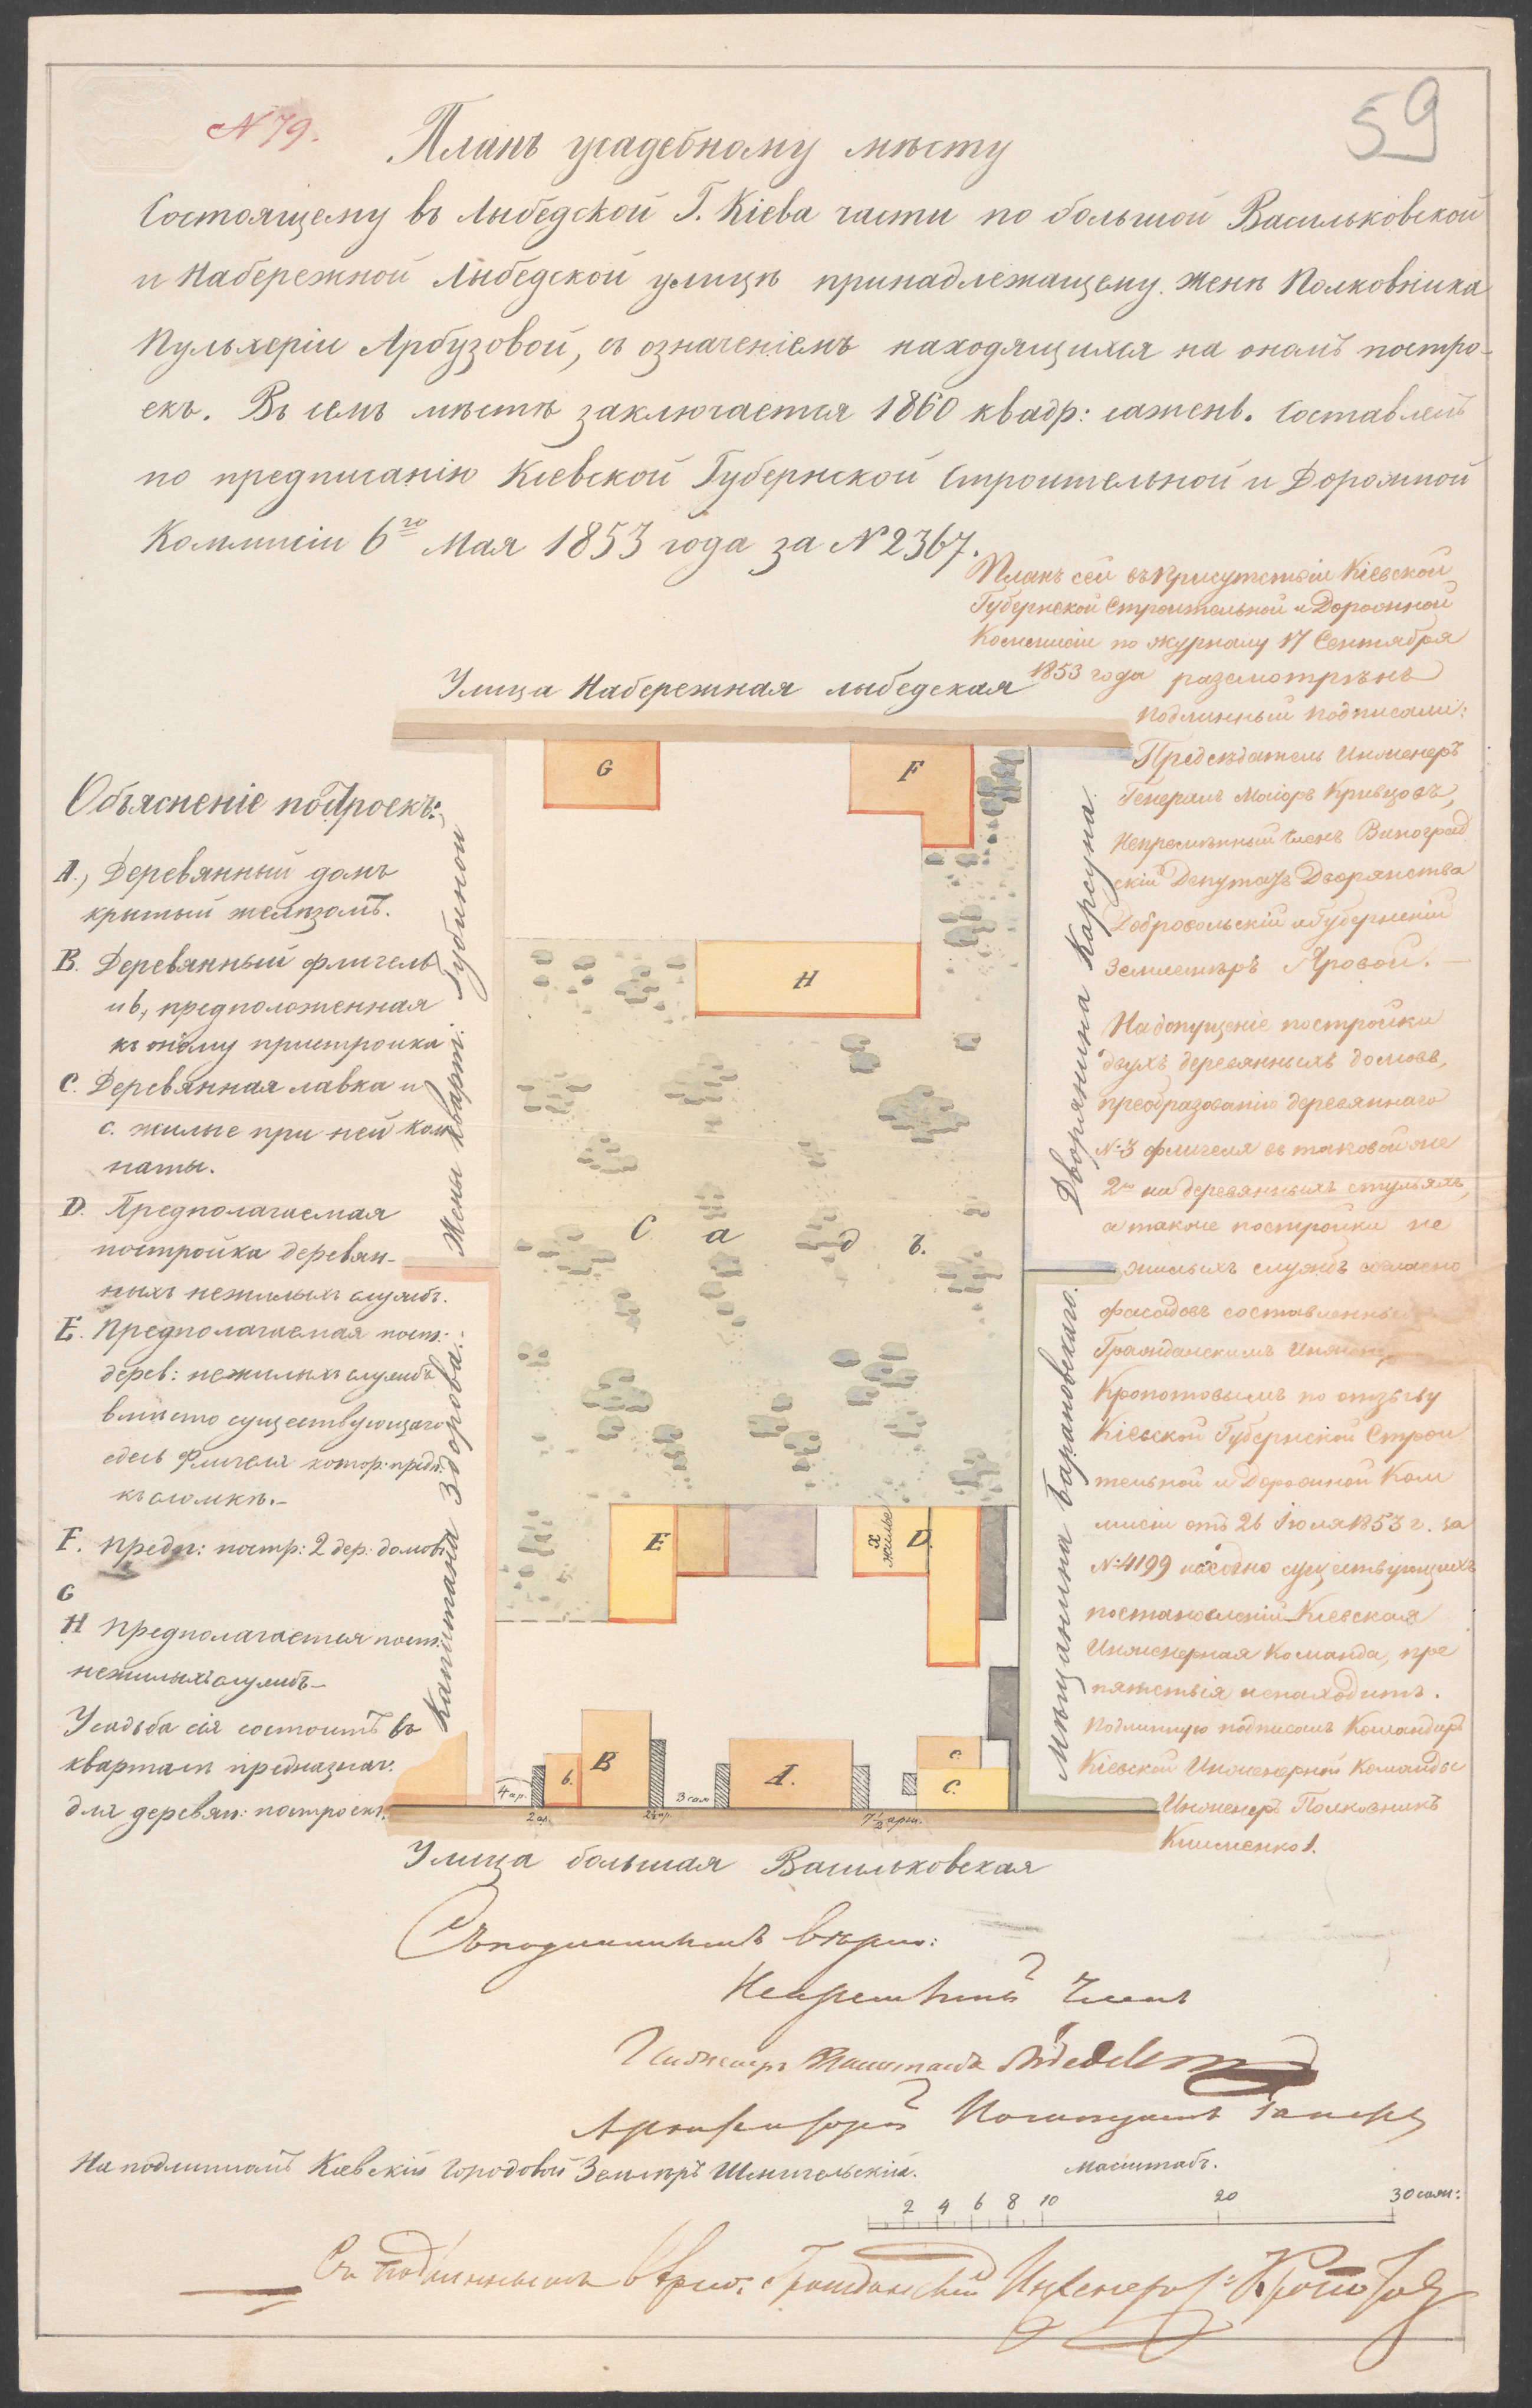 N 79.
59
Планъ усадебному мѣсту
Состоящему въ Лыбедской Г. Кіева части по большой Васильковской
и Набережной Лыбедской улицѣ принадлежащему Женѣ Полковника
Пульхеріи Арбузовой, съ означеніемъ находящихся на ономъ постро-
екъ. Въ семъ мѣстѣ заключается 1860 квадр: сажень. Составленъ
по предписанію Кіевской Губернской Строительной и Дорожной
Коммисіи 6го Мая 1853 года за N 2367.
Планъ сей въ присутствіи Кіевской
Губернской Строительной и Дорожной
Коммисіи по журналу 17 Сентября
1853 года разсмотрѣнъ
подлинный подписали:
Предсѣдатель Инженеръ
Генералъ Маіоръ Кривцовъ,
Непремѣнный Членъ Виноград
скій Депутатъ Дворянства
Добровольскій и Губернскій
Землемѣръ Яровой. —
На допущеніе постройки
двухъ деревянныхъ домовъ,
преобразованію деревяннаго
N 3 флигеля въ таковой же
2й на деревянныхъ стульяхъ,
а также постройки не
жилыхъ службъ согласно
фасадовъ составленныхъ
Гражданскимъ
Кропотовымъ по отзыву
Кіевской Губернской Строи
тельной и Дорожной Ком
мисіи отъ 26 Іюля 1853 г. за
N 4199 существующихъ
постановленій Кіевская
Инженерная Команда, пре
пятствія ненаходитъ.
Подлинную подписалъ Командиръ
Кіевской Инженерной Команды
Инженеръ Полковникъ
Клименко 1.
Улица Набережная лыбедская
Объясненіе построекъ:
А., Деревянный домъ
крытый желѣзомъ.
В. Деревянный флигель
и b, предположенная
къ оному пристройка
С. Деревянная лавка и
с. жилые при ней ком
наты.
D. Предполагаемая
постройка деревян-
ныхъ нежилыхъ службъ.
Е. Предполагаемая пост:
дерев: нежилыхъ службъ
вмѣсто существующаго
здесь флигеля котор: предп:
къ сломкѣ.-
F. предп: постр: 2 дер: домовъ
G
H предполагается пост:
нежилыхъ службъ-
Усадьба сія состоитъ въ
кварталѣ предназнач:
для деревян: построекъ.
Жены кварт: Губиной
Капитана Здорова:
Дворянина Карсуна.
Мѣщанина Барановскаго.
G
F
H
С а д ъ.
E
х жилье
D.
B
b.
A.
c.
C.
4 ар.
2 ар.
2½ ар.
3 саж
7½ арш.
Улица большая Васильковская
Съ подлиннымъ вѣрно:
Непремѣнный Членъ
Инженеръ Капитанъ
На подлинномъ Кіевскій Городовой Землмѣръ
Масштабъ.
2 4 6 8 10 20 30 саж:
Съ подлиннымъ вѣрно: Гражданскій Инженеръ: Кропотовъ